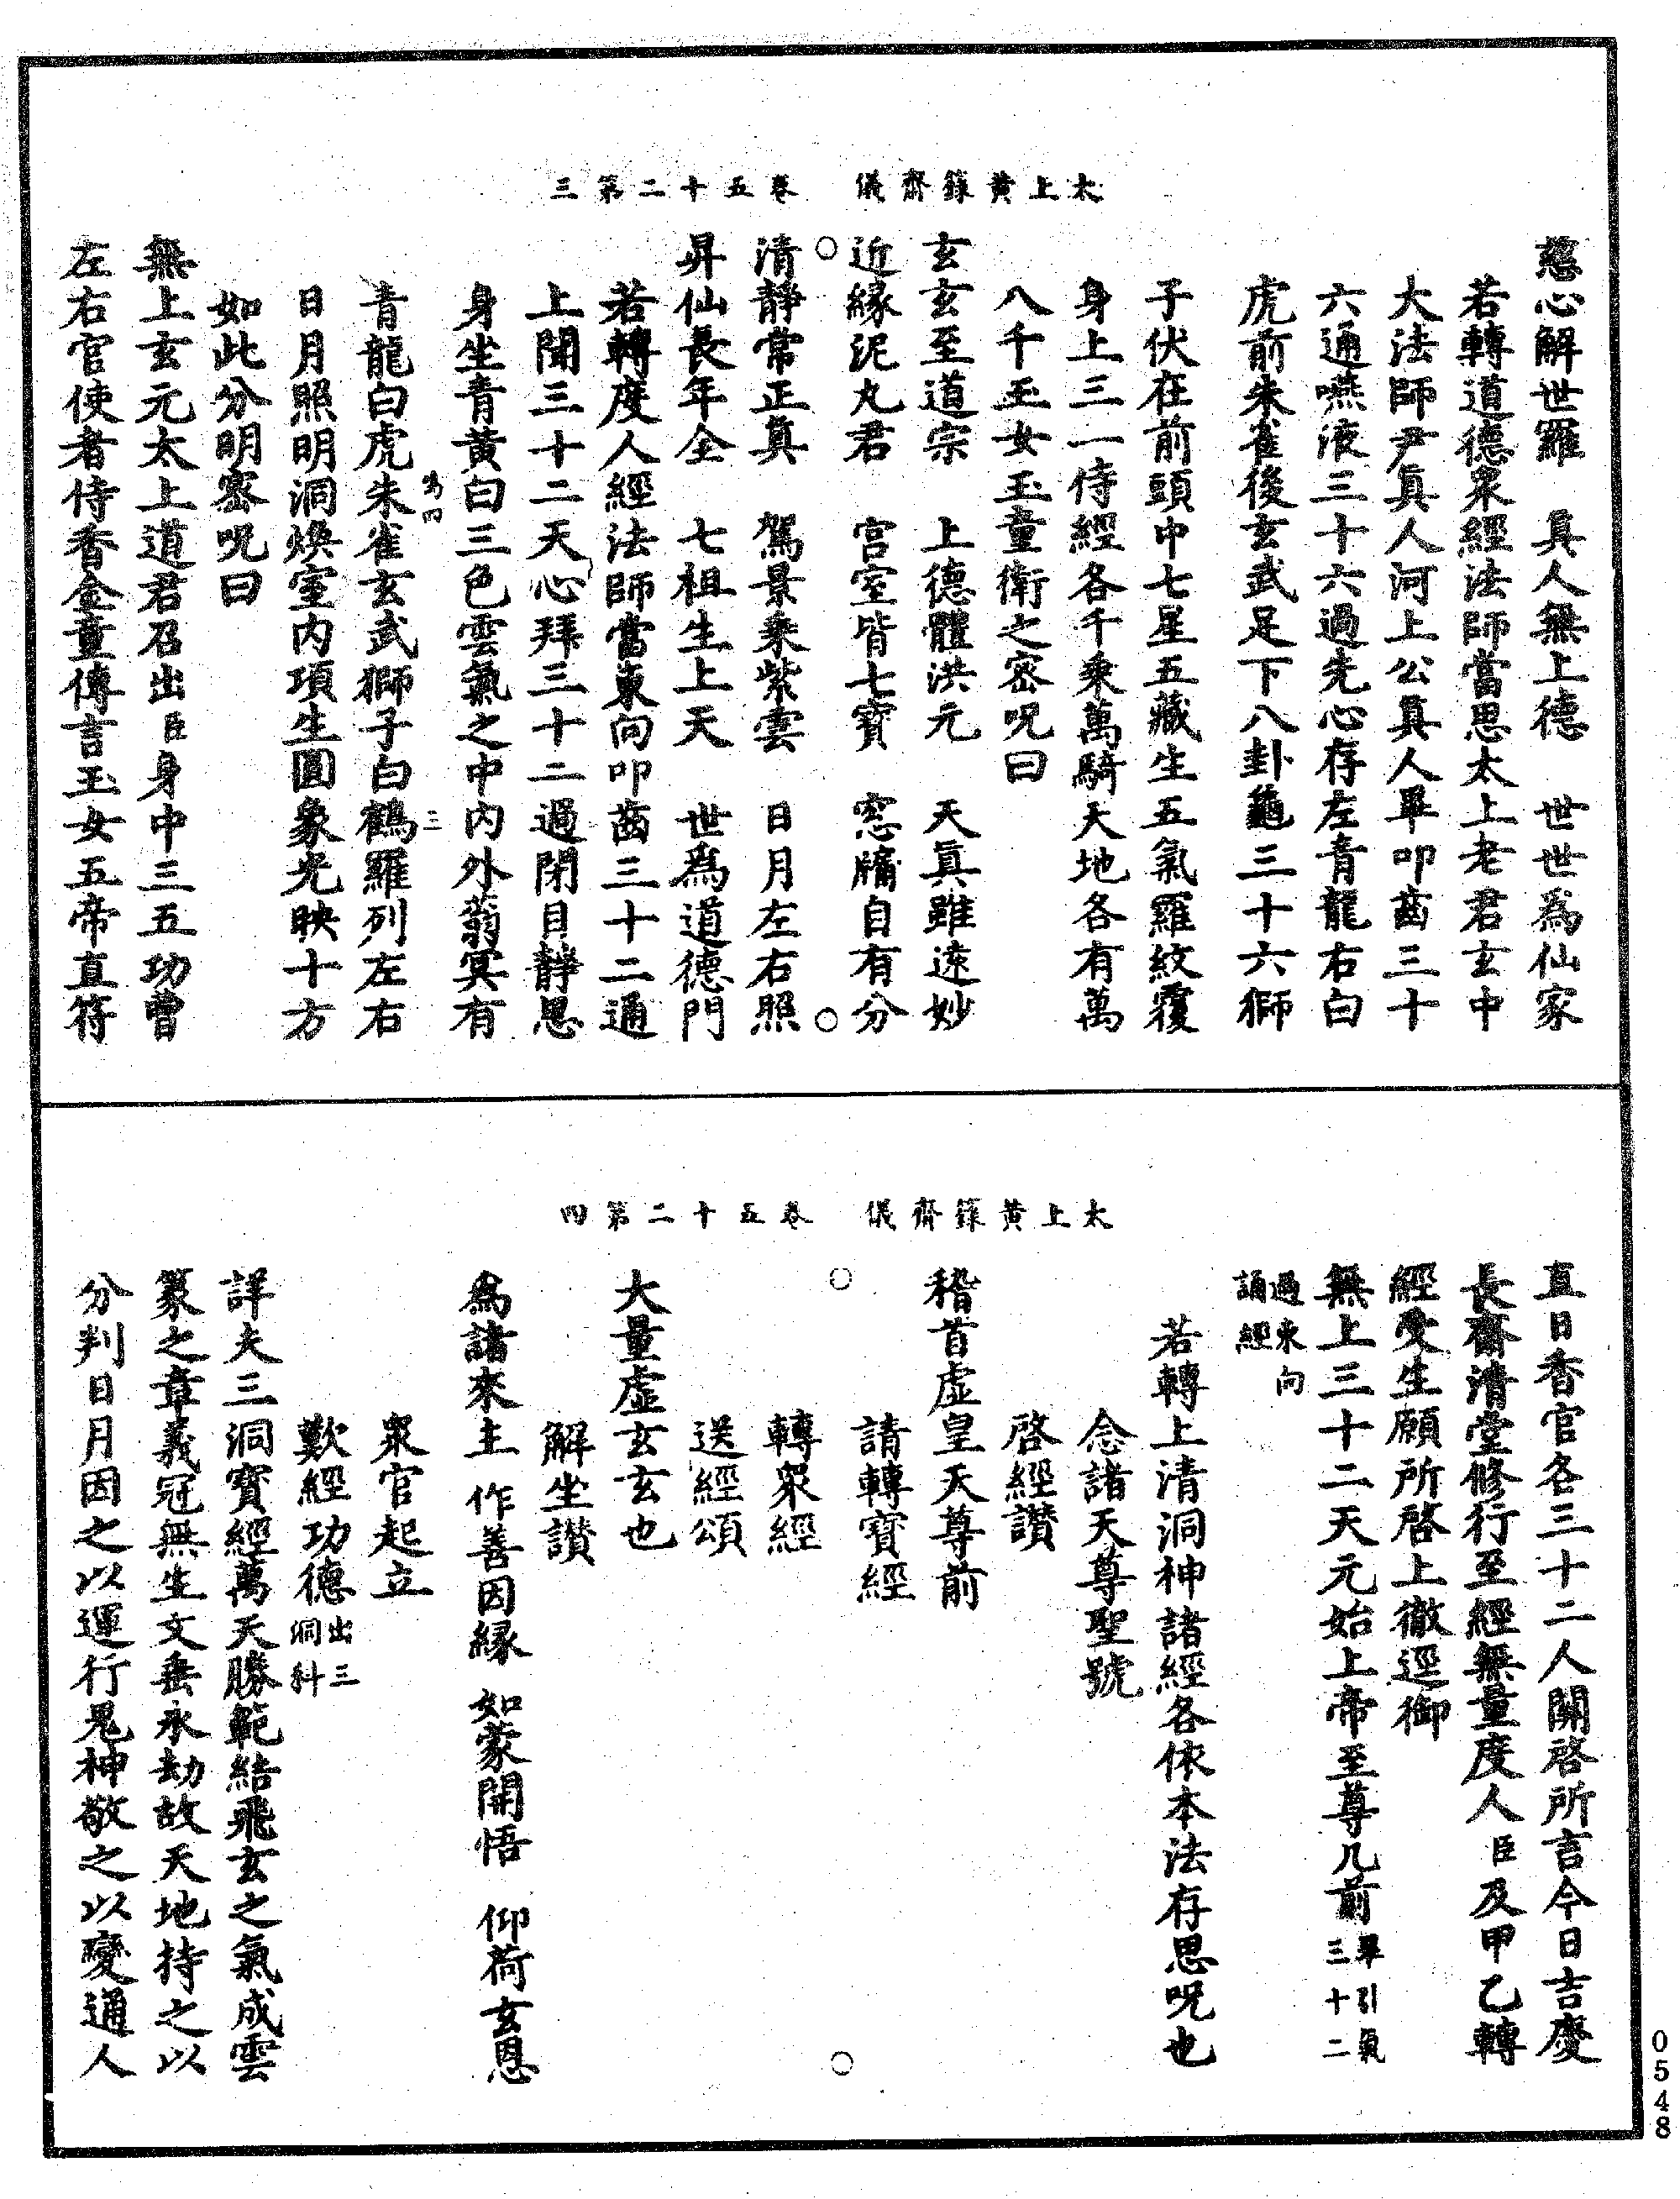 太上黃籙齋儀　卷五十二第三
慈心解世羅　真人無上德　世世爲仙家
若轉道德衆經法師當思太上老君玄中
大法師尹真人河上公真人畢叩齒三十
六通嚥液三十六過先心存左青龍右白
虎前朱雀後玄武足下八卦龜三十六獅
子伏在前頭中七星五藏生五氣羅紋覆
身上三一侍經各千乘萬騎天地各有萬
八千玉女玉童衛之密呪曰
玄玄至道宗　上德體洪元　天真雖遠妙
近緣泥丸君　宮室皆七寶　窓牖自有分
清靜常正真　駕景乘紫雲　日月左右照
昇仙長年全　七祖生上天　世爲道德門
若轉度人經法師當東向叩齒三十二通
上聞三十二天心拜三十二過閉目靜思
身坐青黃白三色雲氣之中內外蓊冥有
青龍白虎朱雀玄武獅子白鶴羅列左右
日月照明洞煥室內項生圓象光映十方
如此分明密呪曰
無上玄元太上道君召出臣身中三五功曹
左右官使者侍香金童傳言玉女五帝直符
太上黃籙齋儀　卷五十二第四
直日香官各三十二人關啓所言今日吉慶
長齋清堂修行至經無量度人臣及甲乙轉
經受生願所啓上徹逕御
無上三十二天元始上帝至尊几前畢引氣三十二
過東向誦經
若轉上清洞神諸經各依本法存思呪也
念諸天尊聖號
啓經讚
稽首虛皇天尊前
請轉寶經
轉衆經
送經頌
大量虛玄玄也
解坐讚
爲諸來主　作善因緣　如蒙開悟　仰荷玄恩
衆官起立
歎經功德出三洞科
詳夫三洞寶經萬天勝範結飛玄之氣成雲
篆之章義冠無生文垂永劫故天地持之以
分判日月因之以運行鬼神敬之以變通人
0548